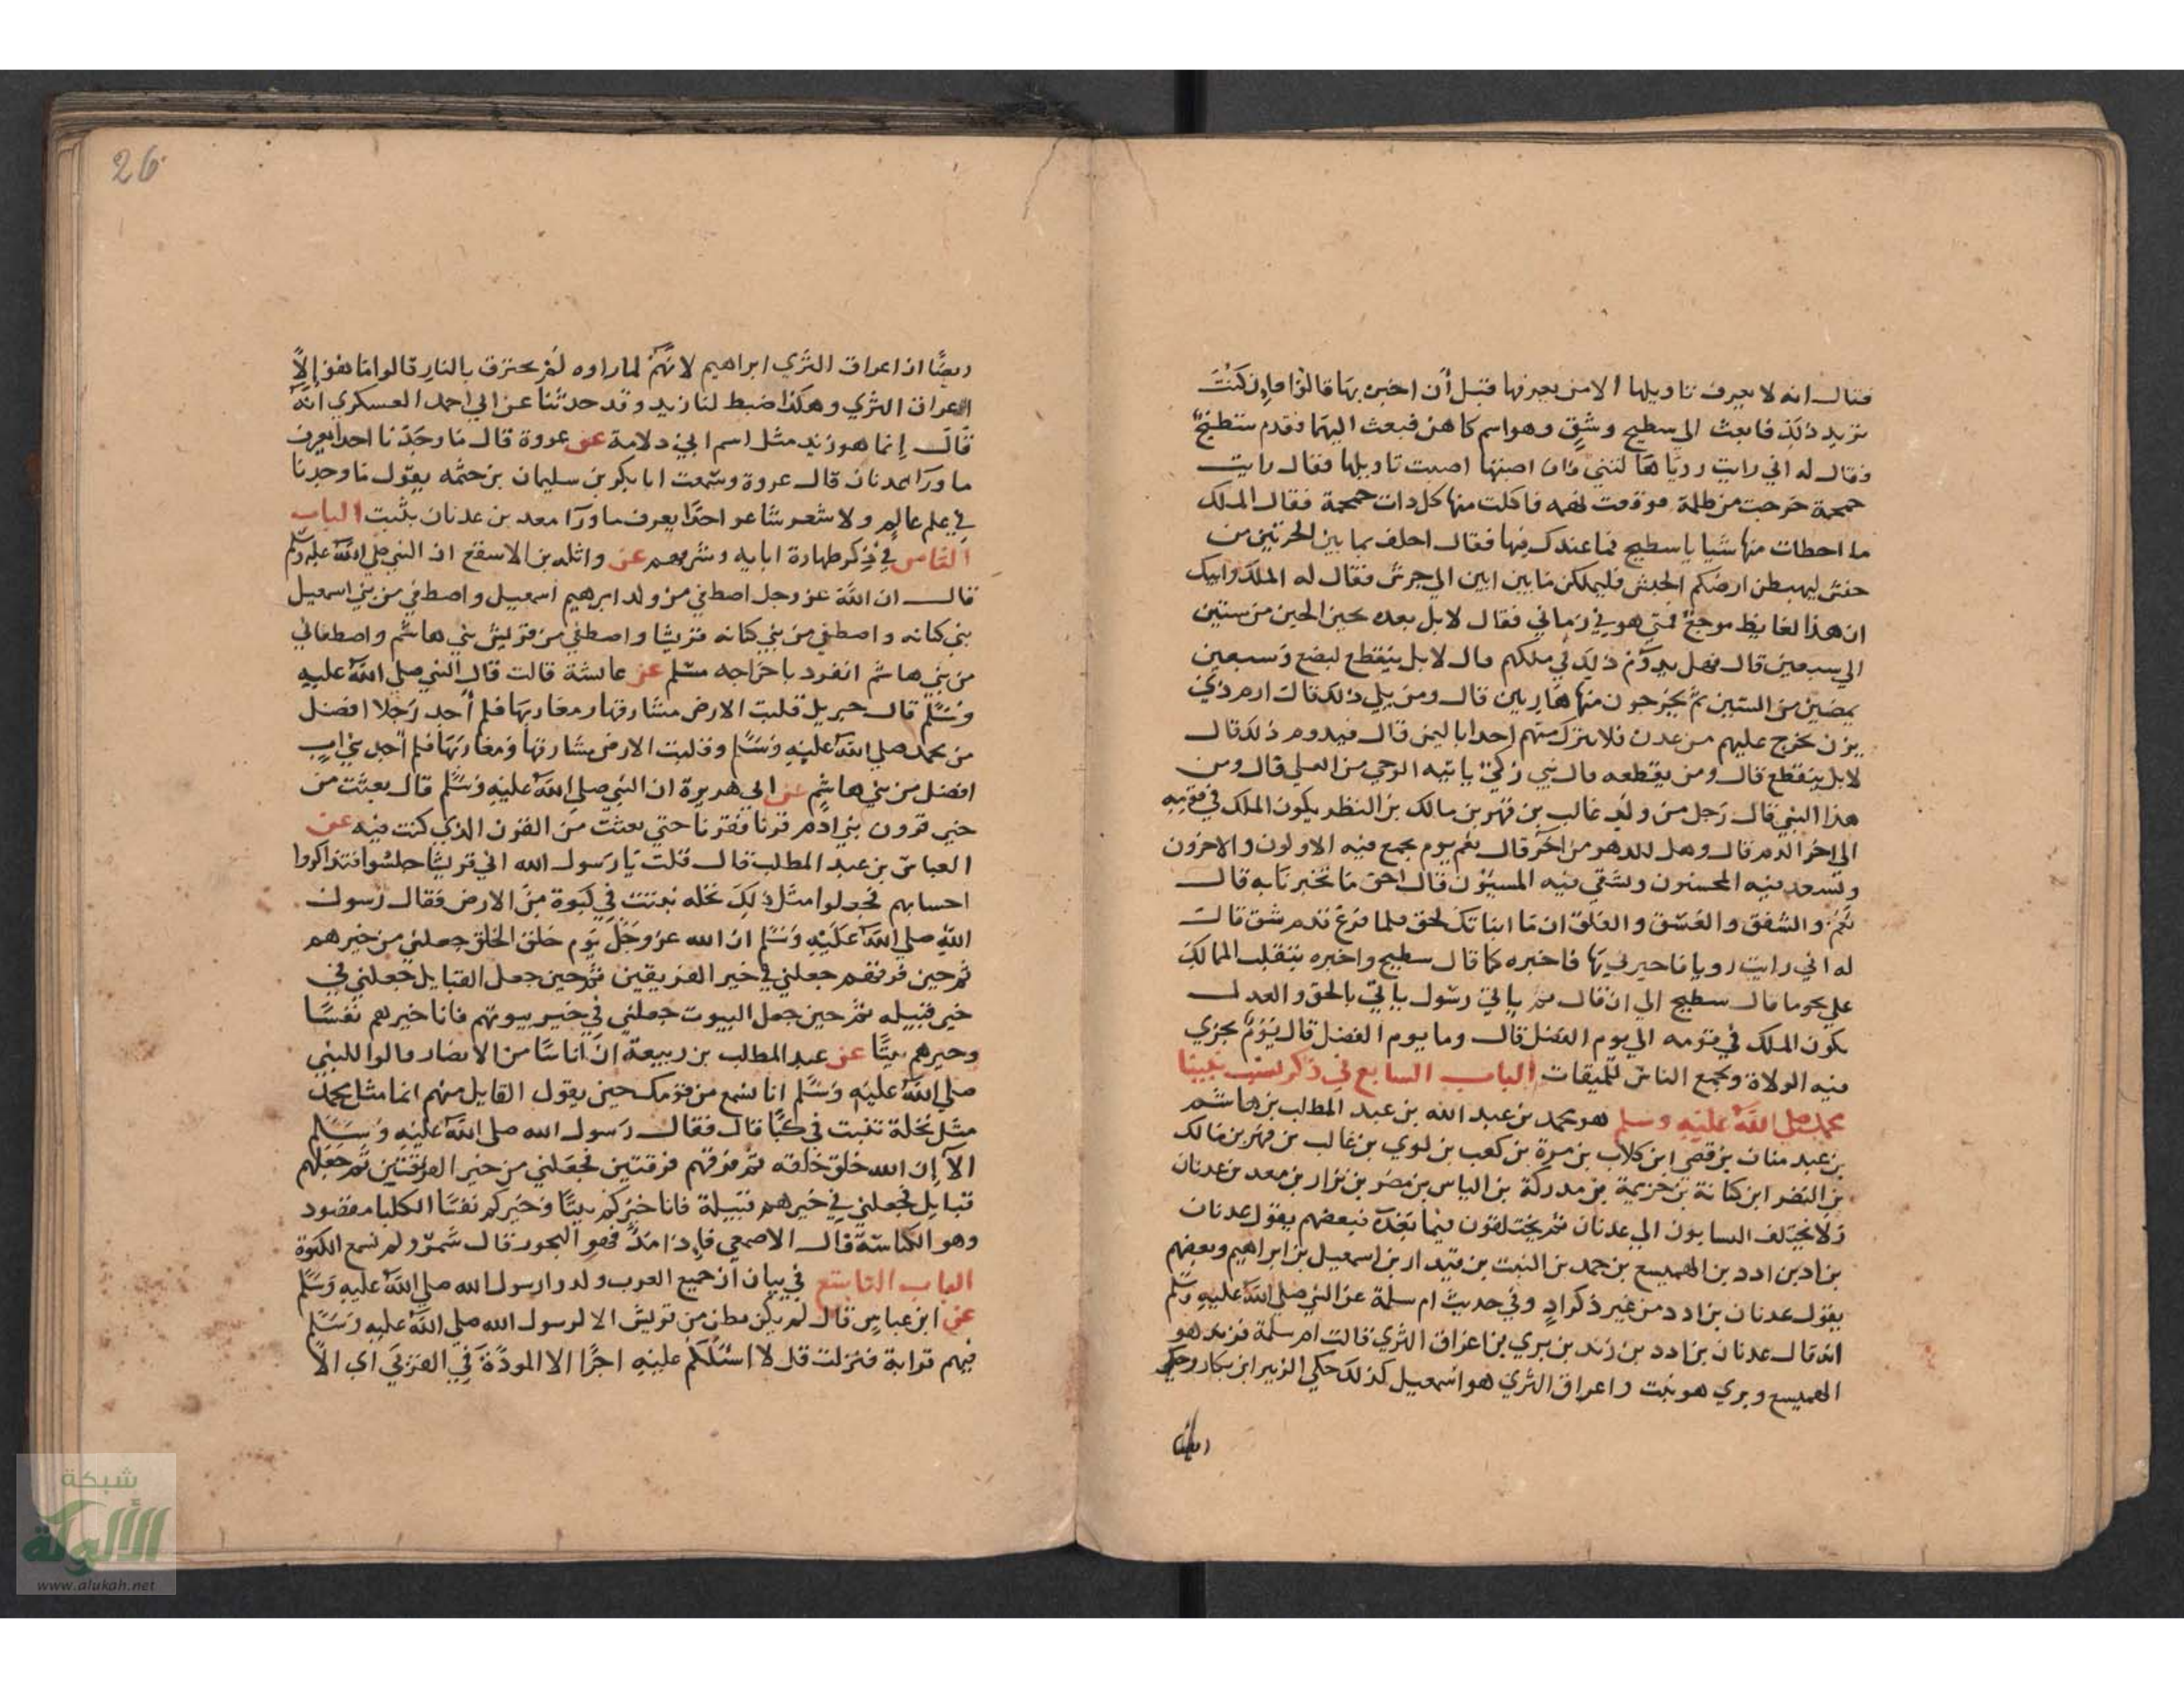 فقال انه لا يعرف تاويلها الا من يعرفها قبل أن اخبره بها قالوا فإن كنت
تريد ذلك فابعث الى سطيح وشق وهو اسم كاهن فبعث اليهما فقدم سطيح
وقال له اني رايت رويا هالتني فان اصبتها اصبت تاويلها فقال رايت
حمحمة خرجت من ظلمة فوقعت تهمه فاكلت منها كل ذات جمجمة فقال الملك
ما اخطات منها شيا يا سطيح فما عندك فيها فقال احلف بما بين الحرتين من
حنش ليهبطن ارضكم الحبش فليملكن ما بين ابين الى جرش فقال له الملك وابيك
ان هذا لغايظ موجع فمتى هو في زماني فقال لا بل بعده بحين الحين من ستين
الي سبعين قال فهل يدوم ذلك في ملكهم قال لا بل ينقطع لبضع وسبعين
يمضين من السنين ثم يخرجون منها هاربين قال ومن يلي ذلك قال ارم ذي
يزن يخرج عليهم من عدن فلا يترك منهم احدا باليمن قال فيدوم ذلك قال
لا بل ينقطع قال ومن يقطعه قال نبي زكي ياتيه الوحي من العلي قال ومن
هذا النبي قال رجل من ولد غالب بن فهر بن مالك بن النظر يكون الملك في قومه
الي اخر الدهر قال وهل للدهر من اخر قال نعم يوم يجمع فيه الاولون والاخرون
ويسعد فيه المحسنون ويشقي فيه المسيؤن قال احق ما تخبرنا به قال
نعم والشفق والغسق والفلق ان ما انباتك لحق فلما فرغ قدم شق قال
له اني رايت رويا فاخبرني بها فاخبره كما قال سطيح واخبره بتقلب الممالك
علي نحو ما قال سطيح الي ان قال ثم ياتي رسول ياتي بالحق والعدل
يكون الملك في قومه الي يوم الفصل قال وما يوم الفصل قال يوم يجزي
فيه الولاة ويجمع الناس للميقات الباب السابع في ذكر نسب نبينا
محمد صلى الله عليه وسلم هو محمد بن عبد الله بن عبد المطلب بن هاشم
بن عبد مناف بن قصي ابن كلاب بن مرة بن كعب بن لوي بن غالب بن فهر بن مالك
بن النضر ابن كنانة بن خزيمة بن مدركة بن الياس بن مضر بن نزار بن معد بن عدنان
ولا يختلف النسابون الي عدنان ثم يختلفون فيما بعده فبعضهم يقول عدنان
بن اد بن ادد بن الهميسع بن حمد بن النبت بن قيدار بن اسمعيل بن ابراهيم وبعضهم
يقول عدنان بن ادد من غير ذكر ادٍ وفي حديث ام سلمة عن النبي صلي الله عليه وسلم
انه قال عدنان بن ادد بن زند بن بري بن اعراق الثري قالت ام سلمة فزند هو
الهميسع وبري هو نبت واعراق الثري هو اسمعيل كذلك حكي الزبير ابن بكار وحكي
ايضًا
26
ايضًا ان اعراق الثري ابراهيم لانهم لما راوه لم يحترق بالنار قالوا ما هو إلا
اعراق الثري وهكذا ضبط لنا زيد وقد حدثنا عن ابي احمد العسكري انه
قال إنما هو زند مثل اسم ابي دلامة عن عروة قال ما وجدنا احدا يعرف
ما ورا عدنان قال عروة وسمعت ابا بكر بن سليمان بن حثمه يقول ما وجدنا
في علم عالم ولا شعر شاعر احدًا يعرف ما ورا معد بن عدنان بثبت الباب
الثامن في ذكر طهارة ابايه وشرفهم عن واثله بن الاسقع ان النبي صلي الله عليه وسلم
قال ان الله عز وجل اصطفي من ولد ابرهيم اسمعيل واصطفي من بني اسمعيل
بني كنانه واصطفي من بني كنانه قريشا واصطفي من قريش بني هاشم واصطفاني
من بني هاشم انفرد باخراجه مسلم عن عائشة قالت قال النبي صلى الله عليه
وسلم قال جبريل قلبت الارض مشارقها ومغاربها فلم أجد رجلا افضل
من محمد صلي الله عليه وسلم وقلبت الارض مشارقها ومغاربها فلم اجد بني ابٍ
افضل من بني هاشم عن ابي هريرة ان النبي صلى الله عليه وسلم قال بعثت من
خير قرون بني ادم قرنا فقرنا حتي بعثت من القرن الذي كنت فيه عن
العباس بن عبد المطلب قال قلت يا رسول الله ان قريشا جلسوا فتذاكروا
احسابهم فجعلوا مثلك نخله نبتت في كبوة من الارض فقال رسول
الله صلي الله عليه وسلم ان الله عز وجل يوم خلق الخلق جعلني من خيرهم
ثم حين فرقهم جعلني في خير الفريقين ثم حين جعل القبايل جعلني في
خير قبيله ثم حين جعل البيوت جعلني في خير بيوتهم فانا خيرهم نفسًا
وخيرهم بيتًا عن عبد المطلب بن ربيعة ان أناسًا من الانصار قالوا للنبي
صلي الله عليه وسلم انا نسمع من قومك حين يقول القايل منهم انما مثل محمد
مثل نخلة تنبت في كبًا قال فقال رسول الله صلى الله عليه وسلم
الا إن الله خلق خلقه ثم فرقهم فرقتين فجعلني من خير الفرقتين ثم جعلهم
قبايل فجعلني في خيرهم قبيلة فانا خيركم بيتًا وخيركم نفسًا الكبا مقصود
وهو الكناسة قال الاصمعي فإذا مد فهو البخور قال شمر ولم نسمع الكبوة
الباب التاسع في بيان ان جميع العرب ولدوا رسول الله صلي الله عليه وسلم
عن ابن عباس قال لم يكن بطن من قريش الا لرسول الله صلي الله عليه وسلم
فيهم قرابة فنزلت قل لا اسئلكم عليه اجرًا الا المودة في القربي اي الا
شبكة
الألوكة
www.alukah.net